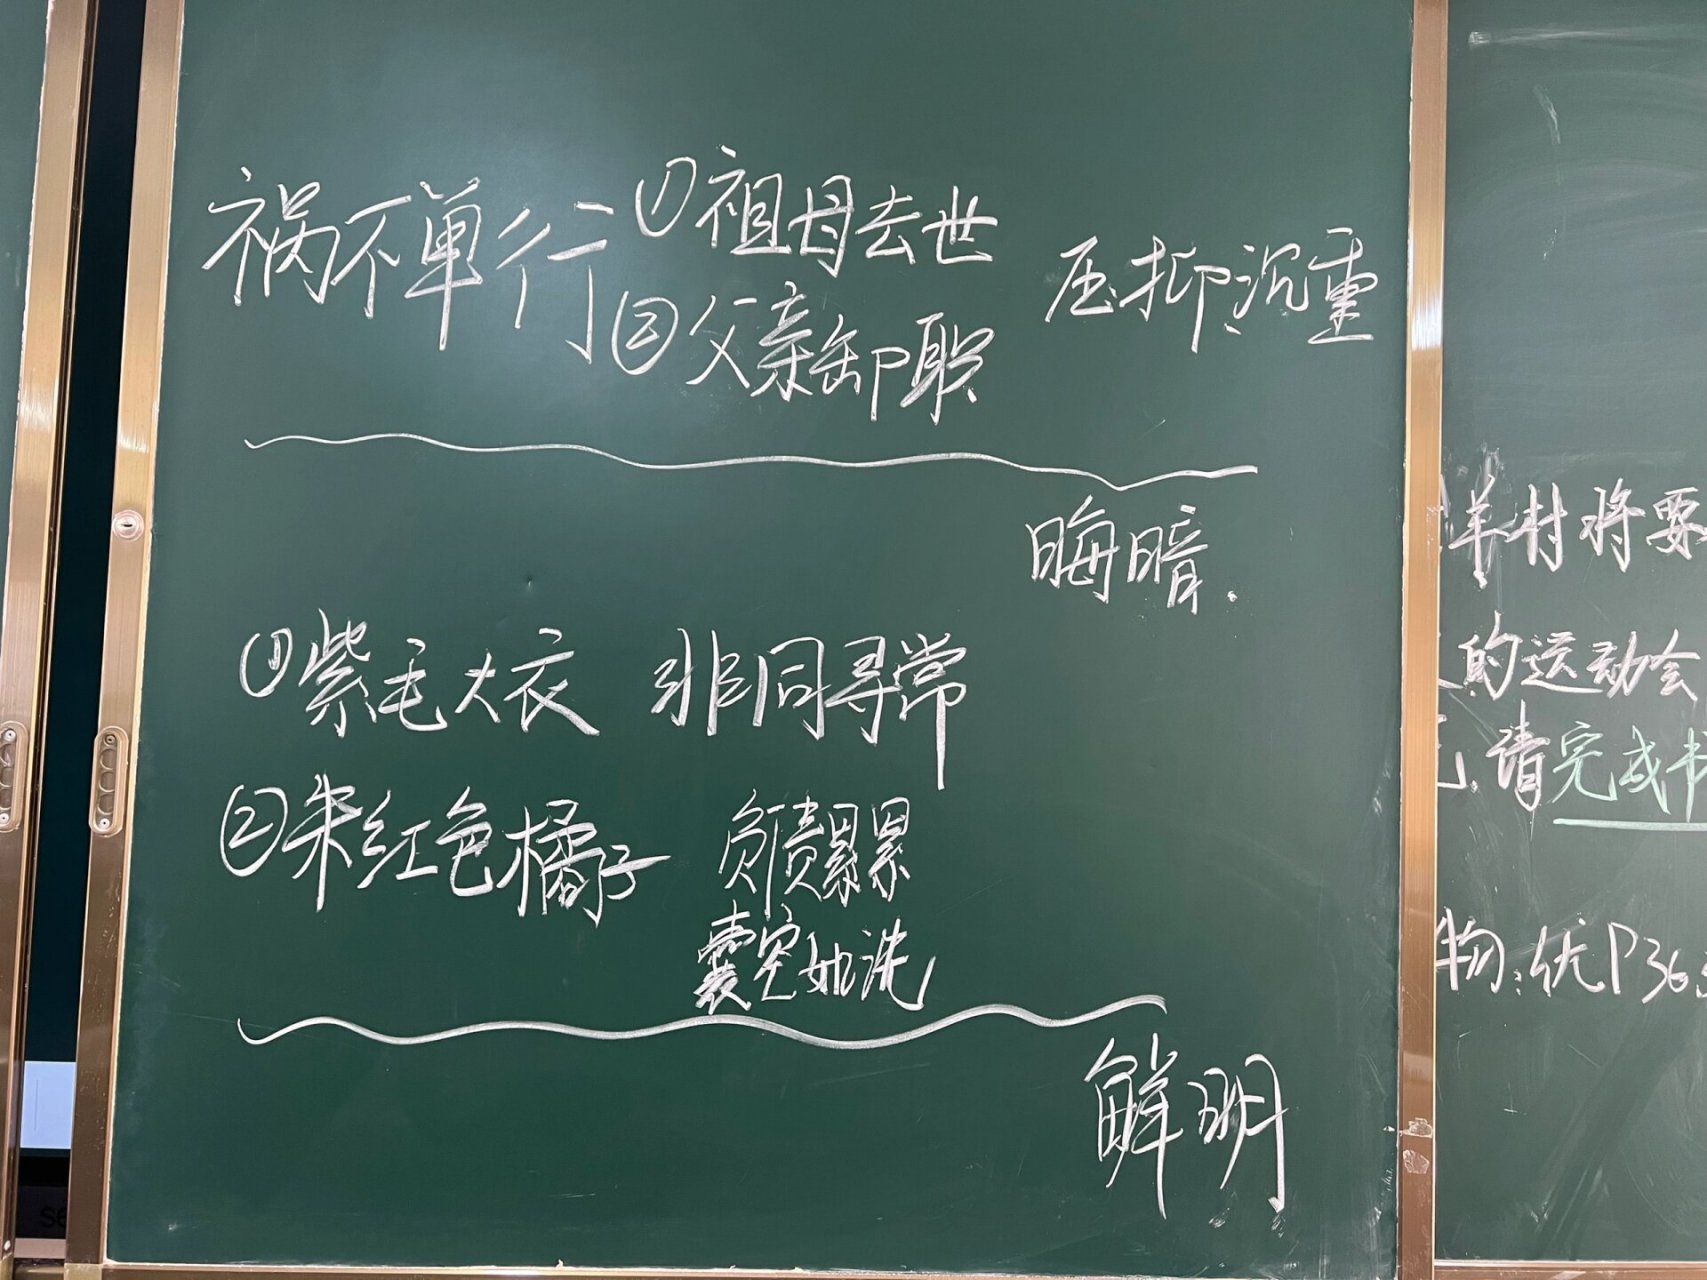 祸不单行 ①祖母去世
②父亲卸职
压抑沉重
晦暗.
①紫毛大衣 非同寻常
②朱红色橘子 负责累累
囊空如洗
鲜明
羊村将要
的运动会
请完成书
物:优P363